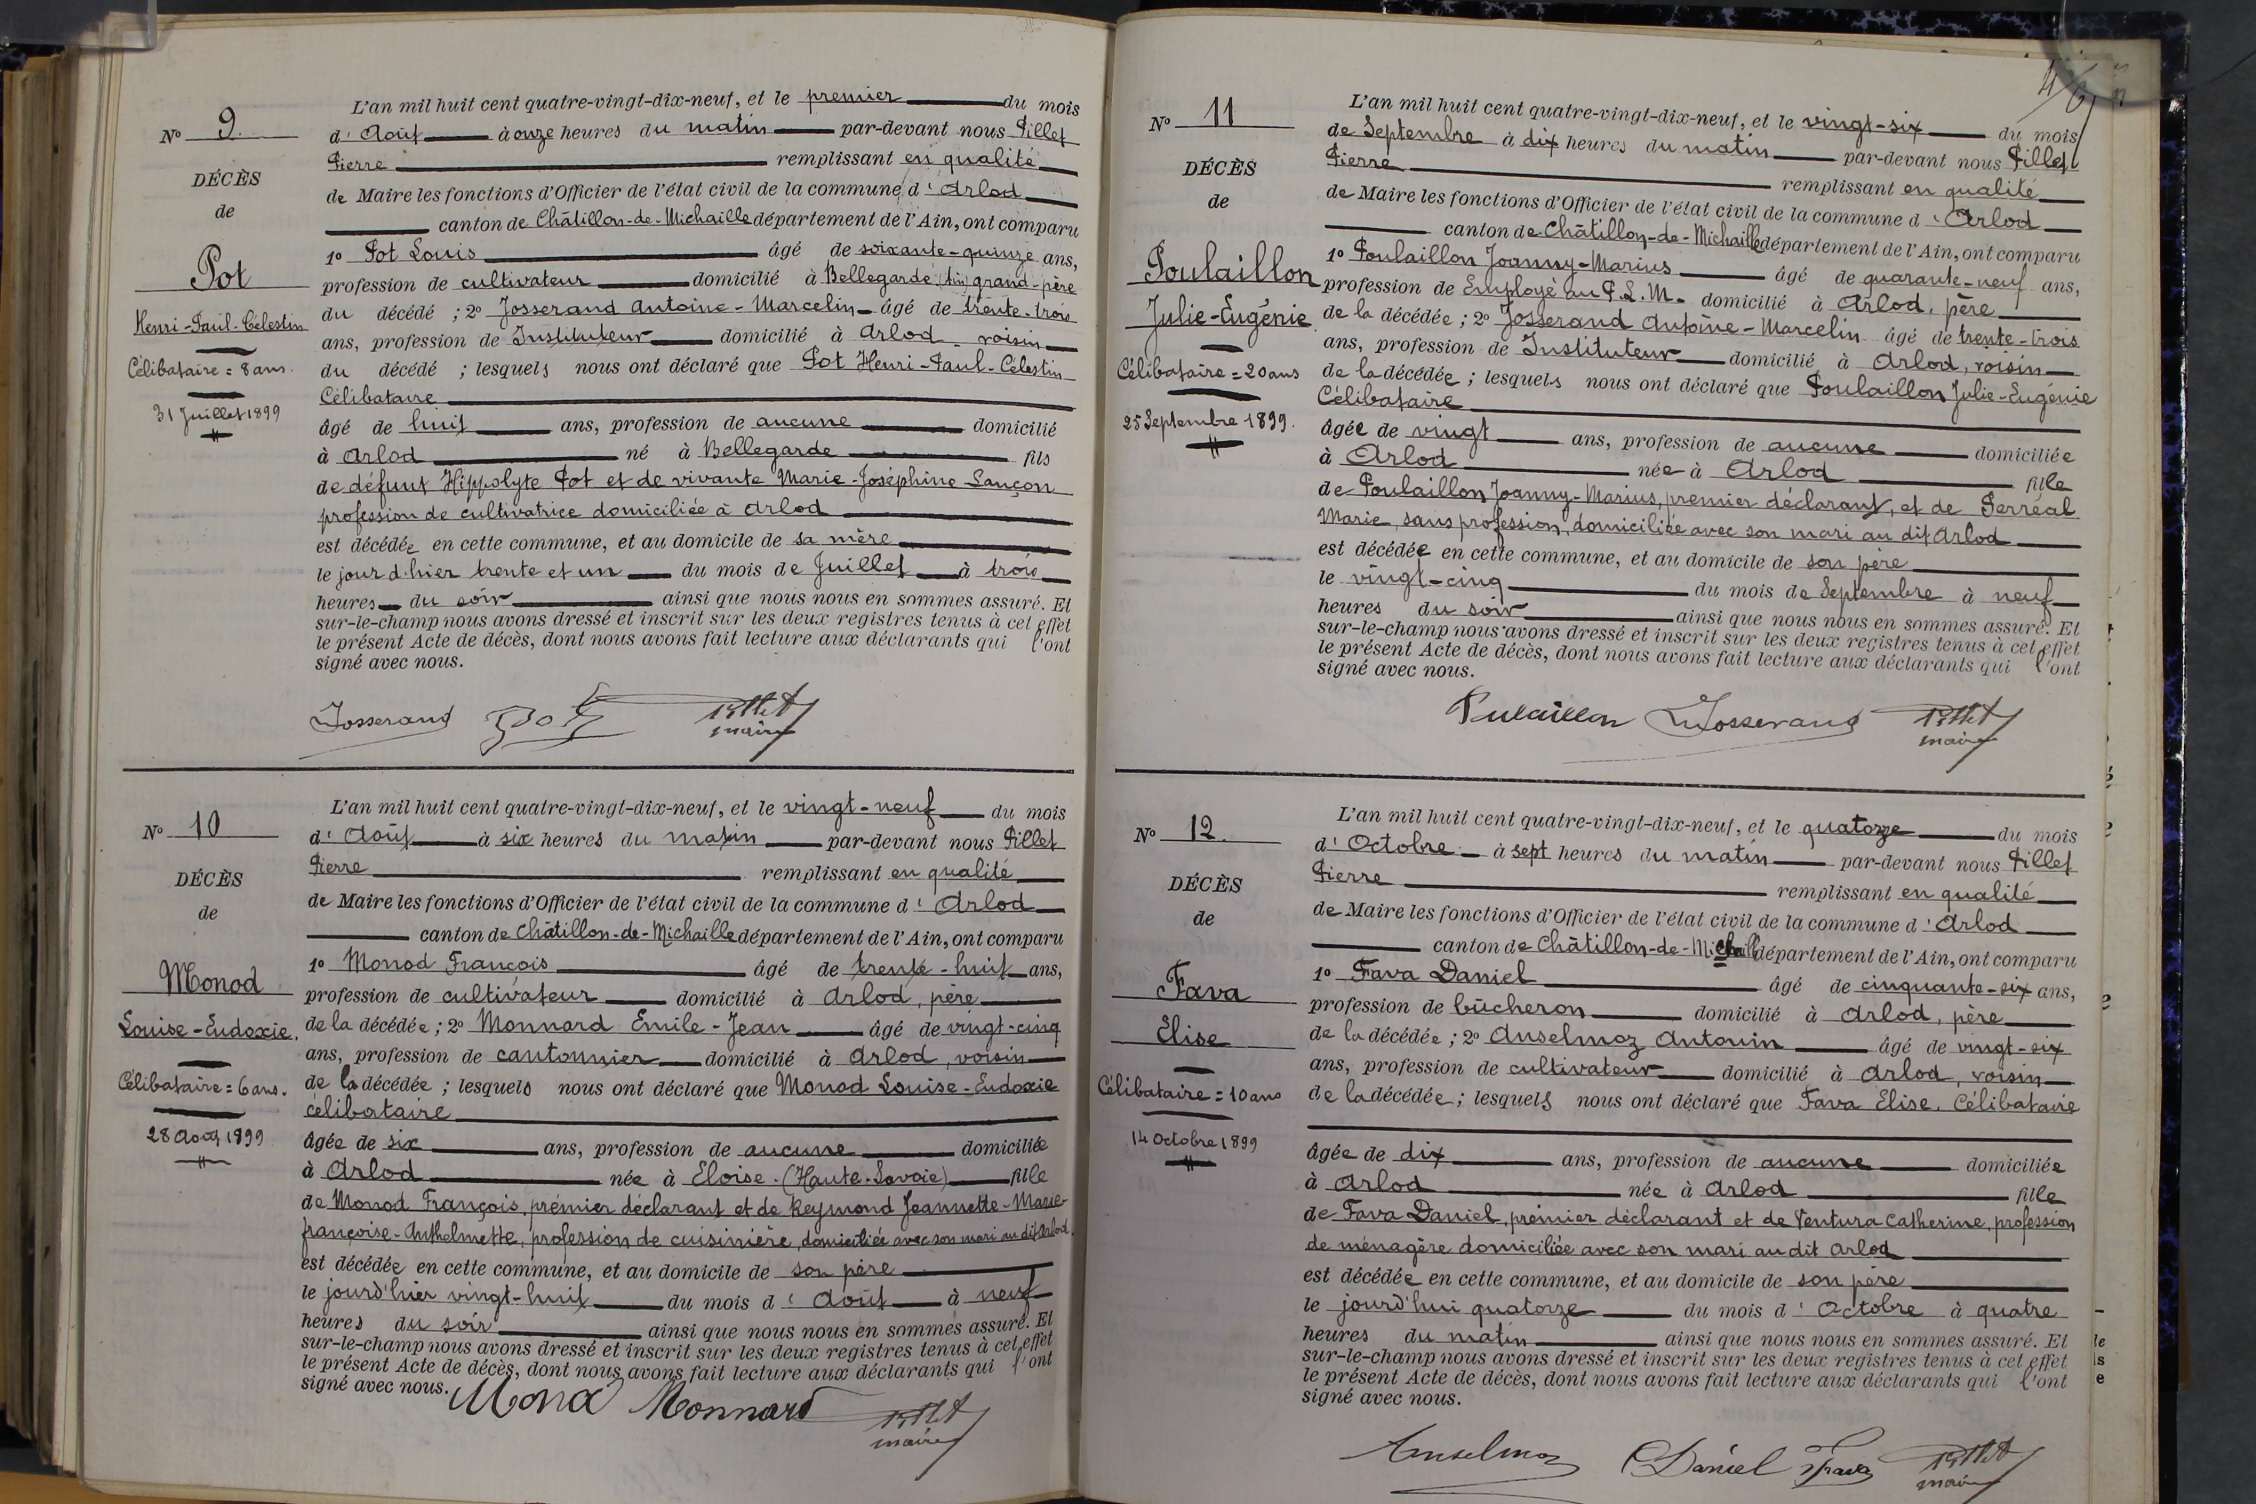 N° 9.
DÉCÈS
de
Pot
Henri-Paul-Célestin
Célibataire = 8 ans.
31 Juillet 1899
L'an mil huit cent quatre-vingt-dix-neuf, et le premier du mois
d'Août à onze heures du matin par-devant nous Pillet
Pierre remplissant en qualité
de Maire les fonctions d'Officier de l'état civil de la commune d'Arlod
canton de Châtillon-de-Michaille département de l'Ain, ont comparu
1° Pot Louis âgé de soixante-quinze ans,
profession de cultivateur domicilié à Bellegarde (Ain) grand-père
du décédé ; 2° Josserand Antoine-Marcelin âgé de trente-trois
ans, profession de Instituteur domicilié à Arlod - voisin
du décédé ; lesquels nous ont déclaré que Pot Henri-Paul-Célestin
Célibataire
âgé de huit ans, profession de aucune domicilié
à Arlod né à Bellegarde fils
de défunt Hippolyte Pot et de vivante Marie-Joséphine Lançon
profession de cultivatrice domiciliée à Arlod
est décédée en cette commune, et au domicile de sa mère
le jour d'hier trente et un du mois de Juillet à trois
heures du soir ainsi que nous nous en sommes assuré. Et
sur-le-champ nous avons dressé et inscrit sur les deux registres tenus à cet effet
le présent Acte de décès, dont nous avons fait lecture aux déclarants qui l'ont
signé avec nous.
Josserand Pot Pillet
maire
N° 10
DÉCÈS
de
Monod
Louise-Eudoxie.
Célibataire = 6 ans.
28 Août 1899
L'an mil huit cent quatre-vingt-dix-neuf, et le vingt-neuf du mois
d'Août à six heures du matin par-devant nous Pillet
Pierre remplissant en qualité
de Maire les fonctions d'Officier de l'état civil de la commune d'Arlod
canton de Châtillon-de-Michaille département de l'Ain, ont comparu
1° Monod François âgé de trente-huit ans,
profession de cultivateur domicilié à Arlod, père
de la décédée ; 2° Monnard Emile-Jean âgé de vingt-cinq
ans, profession de cantonnier domicilié à Arlod, voisin
de la décédée ; lesquels nous ont déclaré que Monod Louise-Eudoxie
célibataire
âgée de six ans, profession de aucune domiciliée
à Arlod née à Eloise. (Haute-Savoie) fille
de Monod François, premier déclarant et de Reymond Jeannette-Marie-
françoise-Anthelmette, profession de cuisinière, domiciliée avec son mari au dit Arlod.
est décédée en cette commune, et au domicile de son père
le jourd'hier vingt-huit du mois d'Août à neuf
heures du soir ainsi que nous nous en sommes assuré. Et
sur-le-champ nous avons dressé et inscrit sur les deux registres tenus à cet effet
le présent Acte de décès, dont nous avons fait lecture aux déclarants qui l'ont
signé avec nous.
Monod Monnard Pillet
maire
N° 11
DÉCÈS
de
Poulaillon
Julie-Eugénie
Célibataire = 20 ans
25 Septembre 1899.
L'an mil huit cent quatre-vingt-dix-neuf, et le vingt-six du mois
de Septembre à dix heures du matin par-devant nous Pillet
Pierre remplissant en qualité
de Maire les fonctions d'Officier de l'état civil de la commune d'Arlod
canton de Châtillon-de-Michaille département de l'Ain, ont comparu
1° Poulaillon Joanny-Marius âgé de quarante-neuf ans,
profession de Employé au P.L.M. domicilié à Arlod, père
de la décédée ; 2° Josserand Antoine-Marcelin âgé de trente-trois
ans, profession de Instituteur domicilié à Arlod, voisin
de la décédée ; lesquels nous ont déclaré que Poulaillon Julie-Eugénie
Célibataire
âgée de vingt ans, profession de aucune domiciliée
à Arlod née à Arlod fille
de Poulaillon Joanny-Marius, premier déclarant, et de Perréal
Marie, sans profession, domiciliée avec son mari au dit Arlod
est décédée en cette commune, et au domicile de son père
le vingt-cinq du mois de Septembre à neuf
heures du soir ainsi que nous nous en sommes assuré. Et
sur-le-champ nous avons dressé et inscrit sur les deux registres tenus à cet effet
le présent Acte de décès, dont nous avons fait lecture aux déclarants qui l'ont
signé avec nous.
Pulaillon Josserand Pillet
maire
N° 12.
DÉCÈS
de
Fava
Elise
Célibataire = 10 ans
14 Octobre 1899
L'an mil huit cent quatre-vingt-dix-neuf, et le quatorze du mois
d'Octobre à sept heures du matin par-devant nous Pillet
Pierre remplissant en qualité
de Maire les fonctions d'Officier de l'état civil de la commune d'Arlod
canton de Châtillon-de-Michaille département de l'Ain, ont comparu
1° Fava Daniel âgé de cinquante-six ans,
profession de bûcheron domicilié à Arlod, père
de la décédée ; 2° Anselmoz Antonin âgé de vingt-six
ans, profession de cultivateur domicilié à Arlod, voisin
de la décédée ; lesquels nous ont déclaré que Fava Elise, Célibataire
âgée de dix ans, profession de aucune domiciliée
à Arlod née à Arlod fille
de Fava Daniel, premier déclarant et de Ventura Catherine, profession
de ménagère domiciliée avec son mari au dit Arlod
est décédée en cette commune, et au domicile de son père
le jourd'hui quatorze du mois d'Octobre à quatre
heures du matin ainsi que nous nous en sommes assuré. Et
sur-le-champ nous avons dressé et inscrit sur les deux registres tenus à cet effet
le présent Acte de décès, dont nous avons fait lecture aux déclarants qui l'ont
signé avec nous.
Anselmoz Daniel Fava Pillet
maire